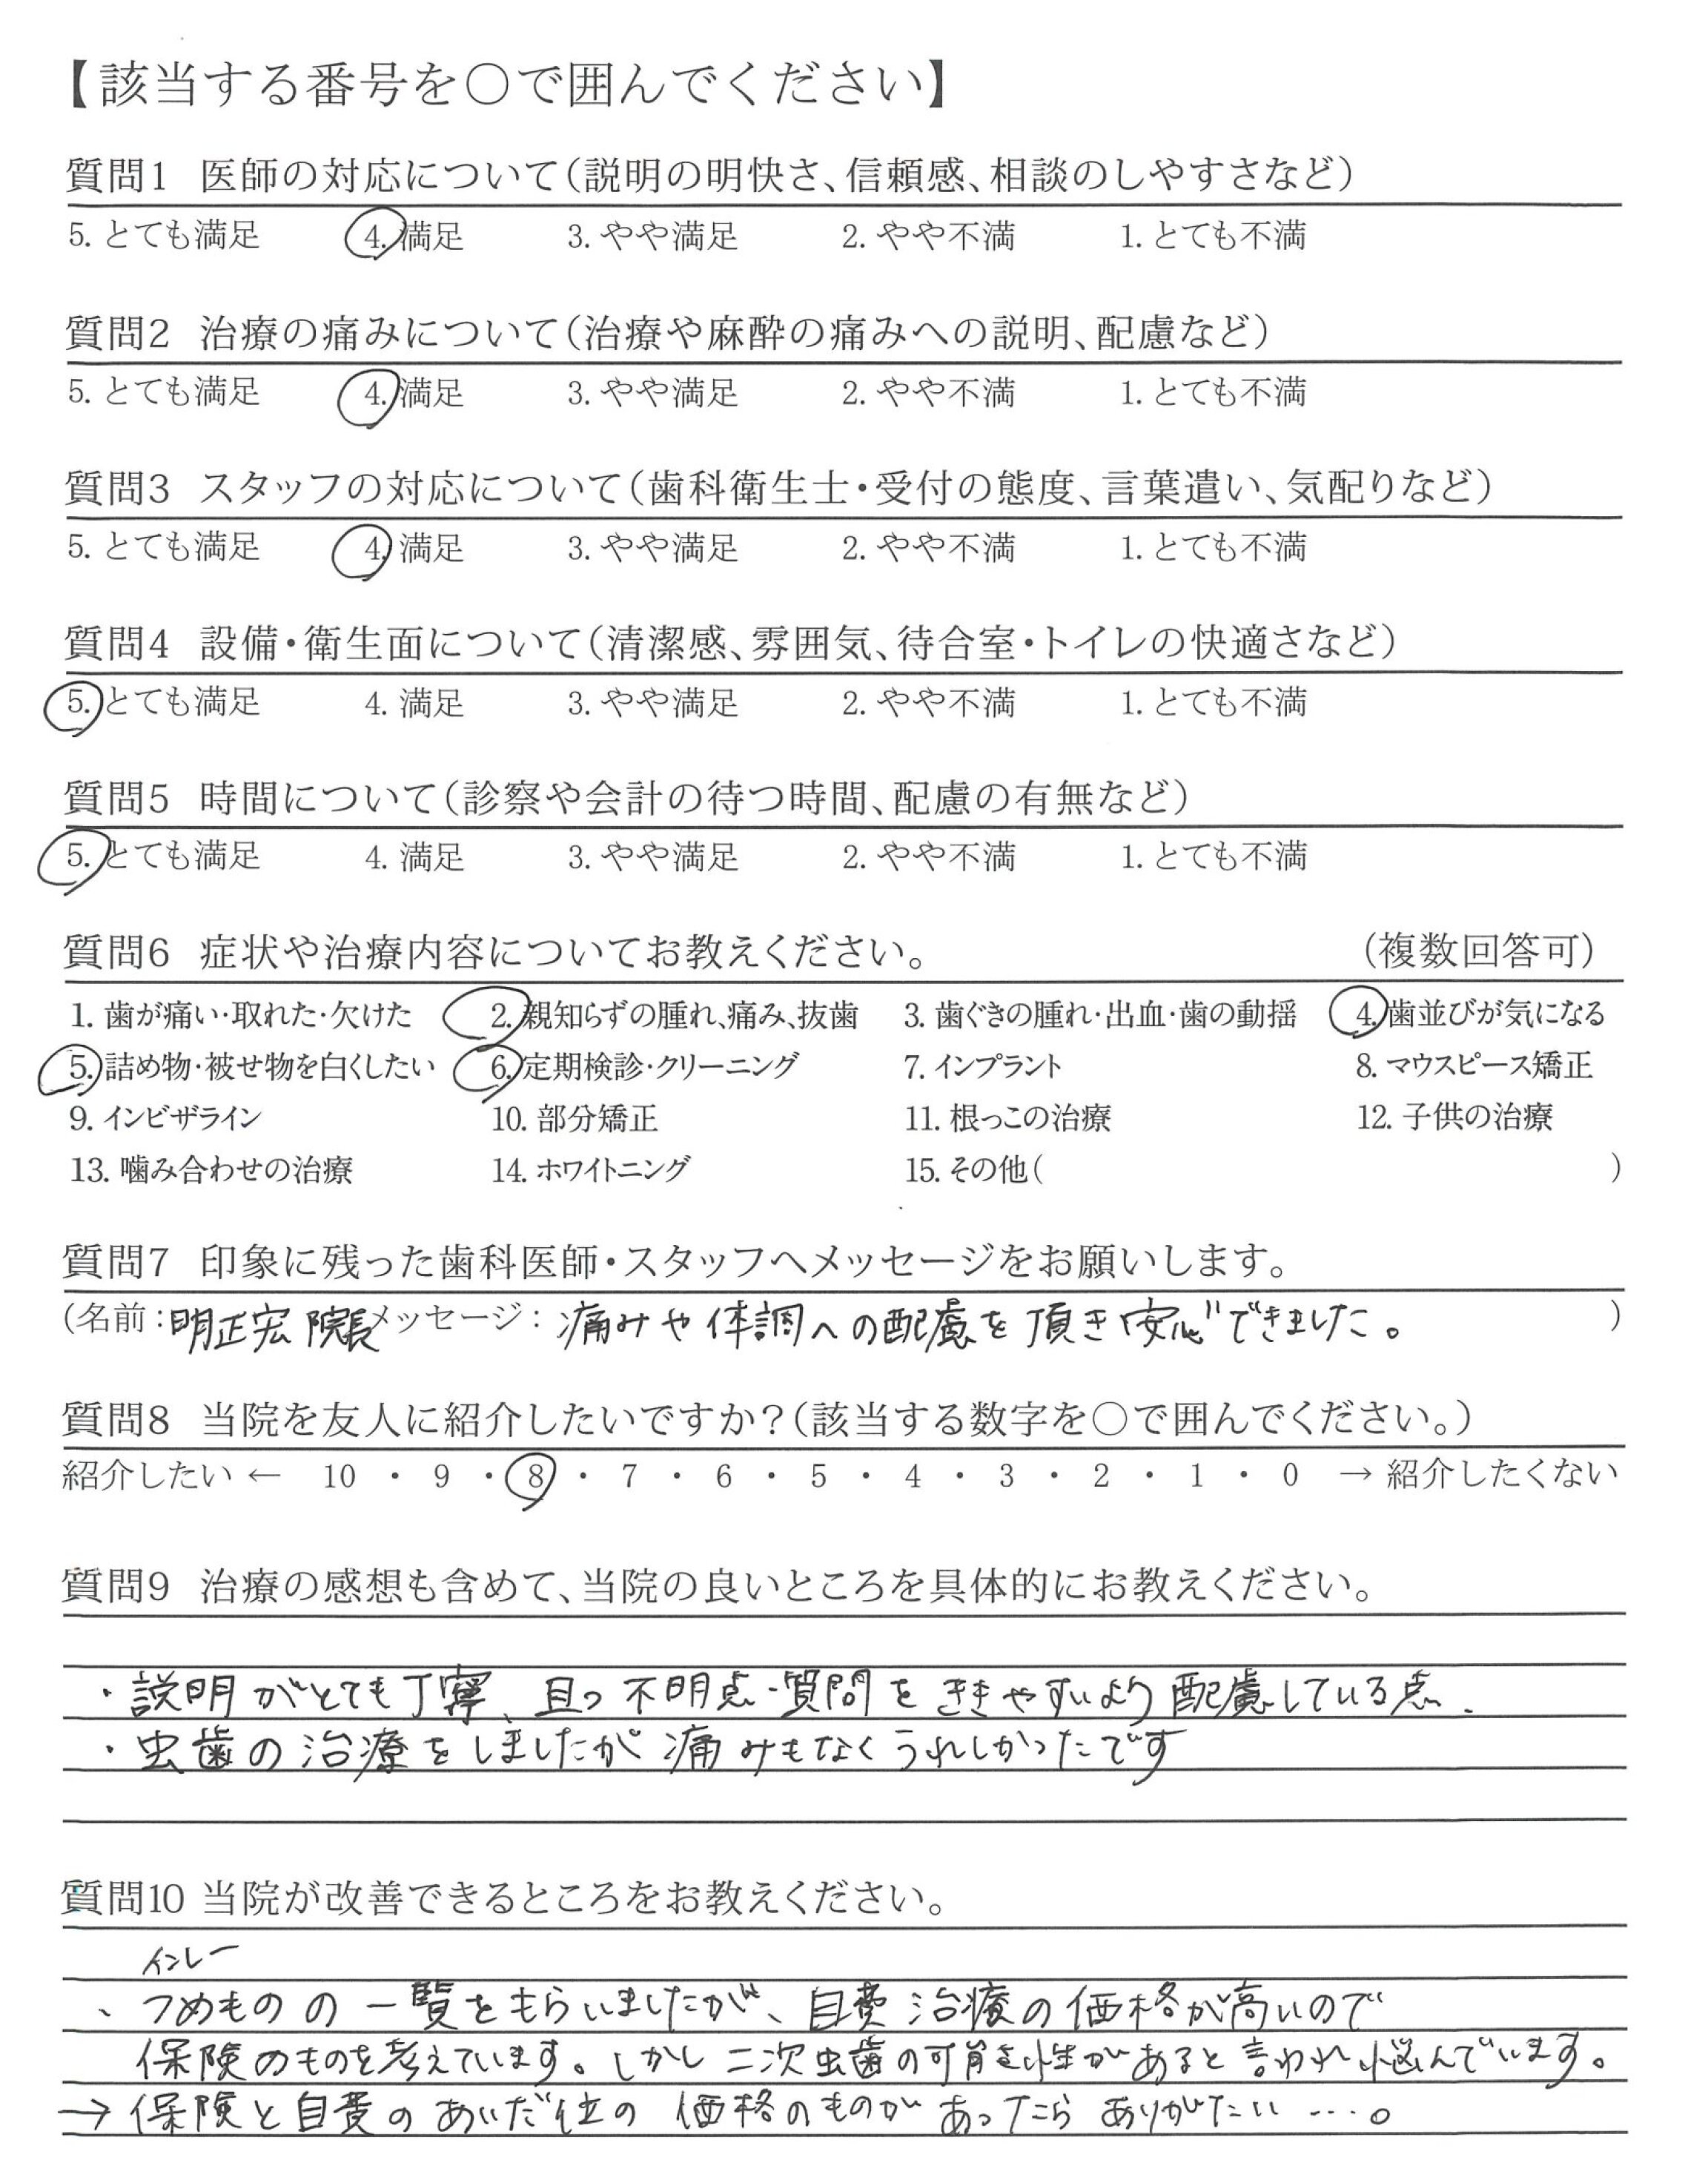 【該当する番号を○で囲んでください】
質問1 医師の対応について(説明の明快さ、信頼感、相談のしやすさなど)
5. とても満足 4. 満足 3. やや満足 2. やや不満 1. とても不満
質問2 治療の痛みについて(治療や麻酔の痛みへの説明、配慮など)
5. とても満足 4. 満足 3. やや満足 2. やや不満 1. とても不満
質問3 スタッフの対応について(歯科衛生士・受付の態度、言葉遣い、気配りなど)
5. とても満足 4. 満足 3. やや満足 2. やや不満 1. とても不満
質問4 設備・衛生面について(清潔感、雰囲気、待合室・トイレの快適さなど)
5. とても満足 4. 満足 3. やや満足 2. やや不満 1. とても不満
質問5 時間について(診察や会計の待つ時間、配慮の有無など)
5. とても満足 4. 満足 3. やや満足 2. やや不満 1. とても不満
質問6 症状や治療内容についてお教えください。 (複数回答可)
1. 歯が痛い・取れた・欠けた 2. 親知らずの腫れ、痛み、抜歯 3. 歯ぐきの腫れ・出血・歯の動揺 4. 歯並びが気になる
5. 詰め物・被せ物を白くしたい 6. 定期検診・クリーニング 7. インプラント 8. マウスピース矯正
9. インビザライン 10. 部分矯正 11. 根っこの治療 12. 子供の治療
13. 噛み合わせの治療 14. ホワイトニング 15. その他( )
質問7 印象に残った歯科医師・スタッフへメッセージをお願いします。
(名前:明正宏 院長 メッセージ:痛みや体調への配慮を頂き安心できました。 )
質問8 当院を友人に紹介したいですか?(該当する数字を○で囲んでください。)
紹介したい ← 10 ・ 9 ・ 8 ・ 7 ・ 6 ・ 5 ・ 4 ・ 3 ・ 2 ・ 1 ・ 0 → 紹介したくない
質問9 治療の感想も含めて、当院の良いところを具体的にお教えください。
・説明がとても丁寧、且つ不明点・質問をききやすいよう配慮している点.
・虫歯の治療をしましたが痛みもなくうれしかったです
質問10 当院が改善できるところをお教えください。
インレー
、つめものの一覧をもらいましたが、自費治療の価格が高いので
保険のものを考えています。しかし二次虫歯の可能性があると言われ悩んでいます。
→保険と自費のあいだ位の価格のものがあったらありがたい….。